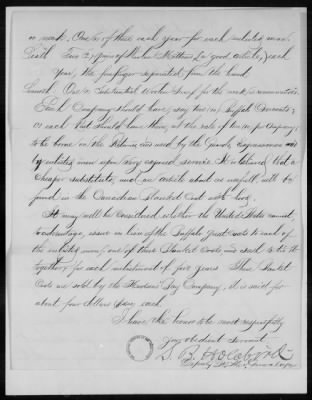 or neck. One of these each year for each enlisted man.
Sixth Two (2) pairs of Woolen Mittens (a good article) each
Year, the forefinger separated from the hand.
Seventh One substantial Woolen Scarf for the neck,
Each Company should have, say two Buffalo Overcoats;
or each Post should have them, at the rate of ten per Company;
to be borne on the Returns and used by the Guards, expressmen and
by enlisted men upon very exposed service. It is believed that a
cheaper substitute, and an article about as useful, will be
found in the Canadian Blanket Coat with hood.
It may well be considered whether the United States cannot,
to advantage, issue in lieu of the Buffalo great coats to each of
the enlisted men, one of these Blanket Coats, and such to fit
together, for each enlistment of five years. These Blanket
Coats are sold by the Hudson's Bay Company, it is said for
about four dollars apiece each.
I have the honor to be most respectfully
Your obedient Servant
S. B. Holabird
Deputy Qr. Mr. General